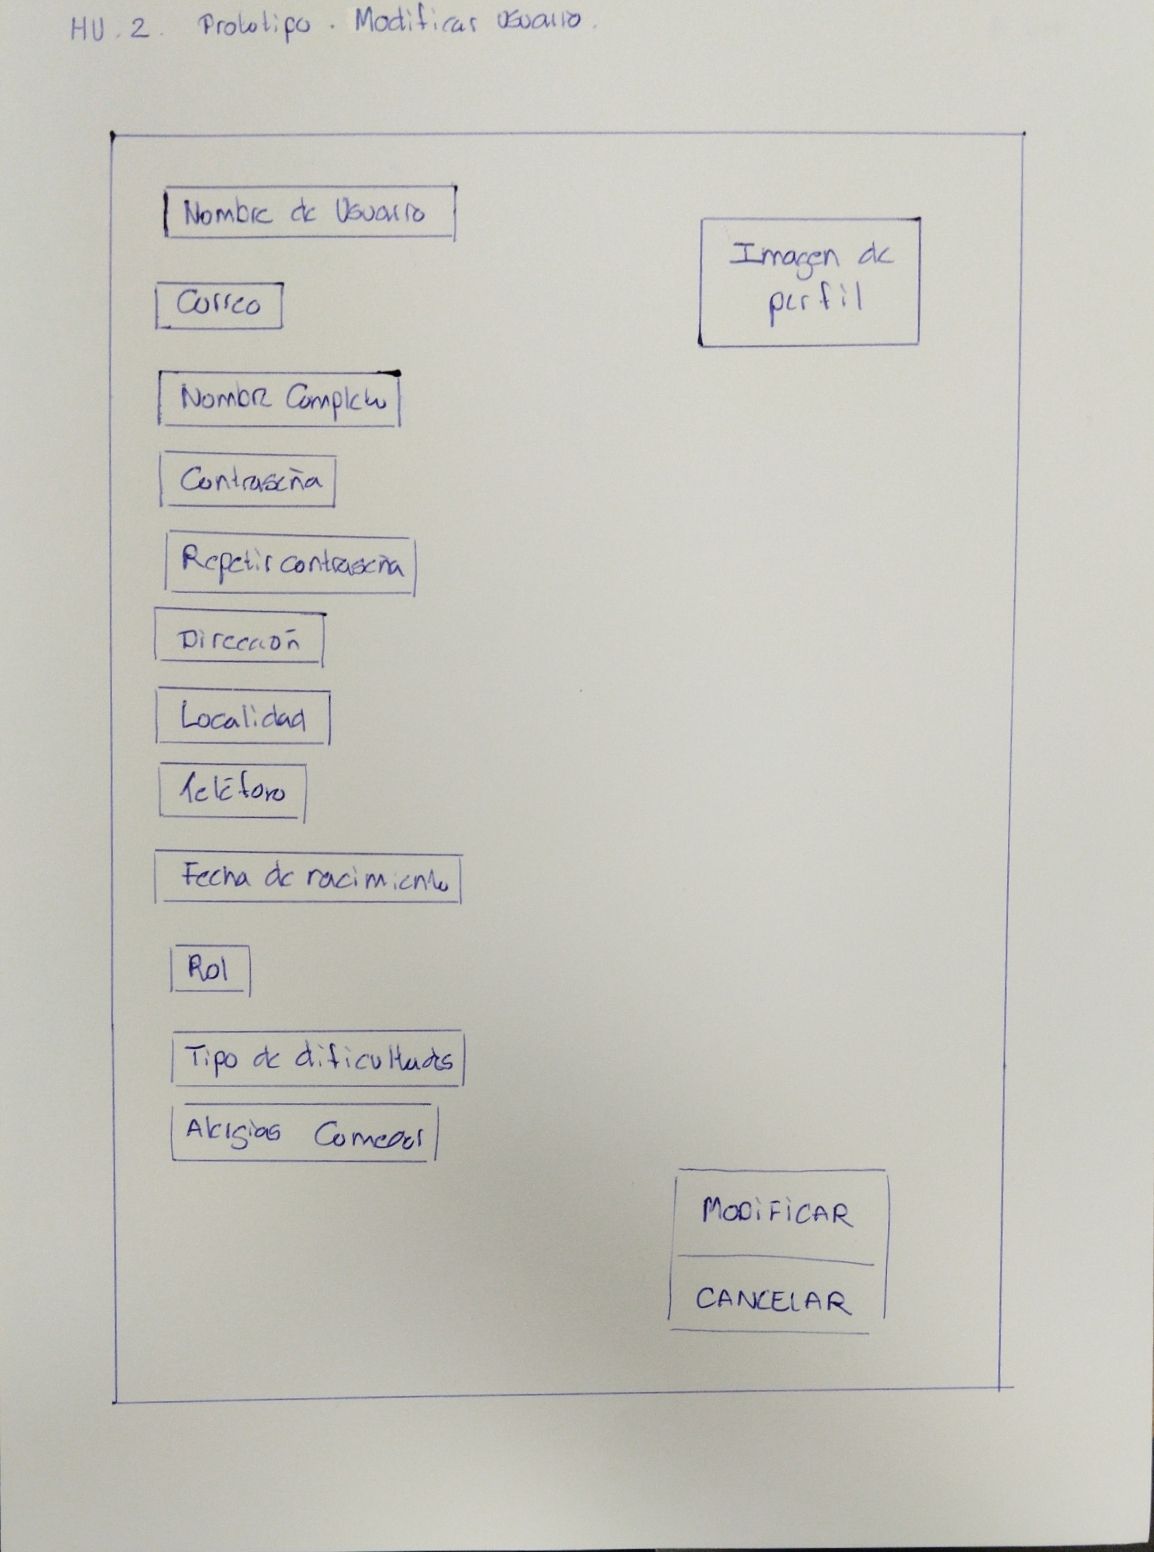 HU. 2. Prototipo. Modificar Usuario.
Nombre de Usuario
Imagen de
perfil
Correo
Nombre Completo
Contraseña
Repetir contraseña
Dirección
Localidad
Teléfono
Fecha de nacimiento
Rol
Tipo de dificultades
Alergias Comedor
MODIFICAR
CANCELAR